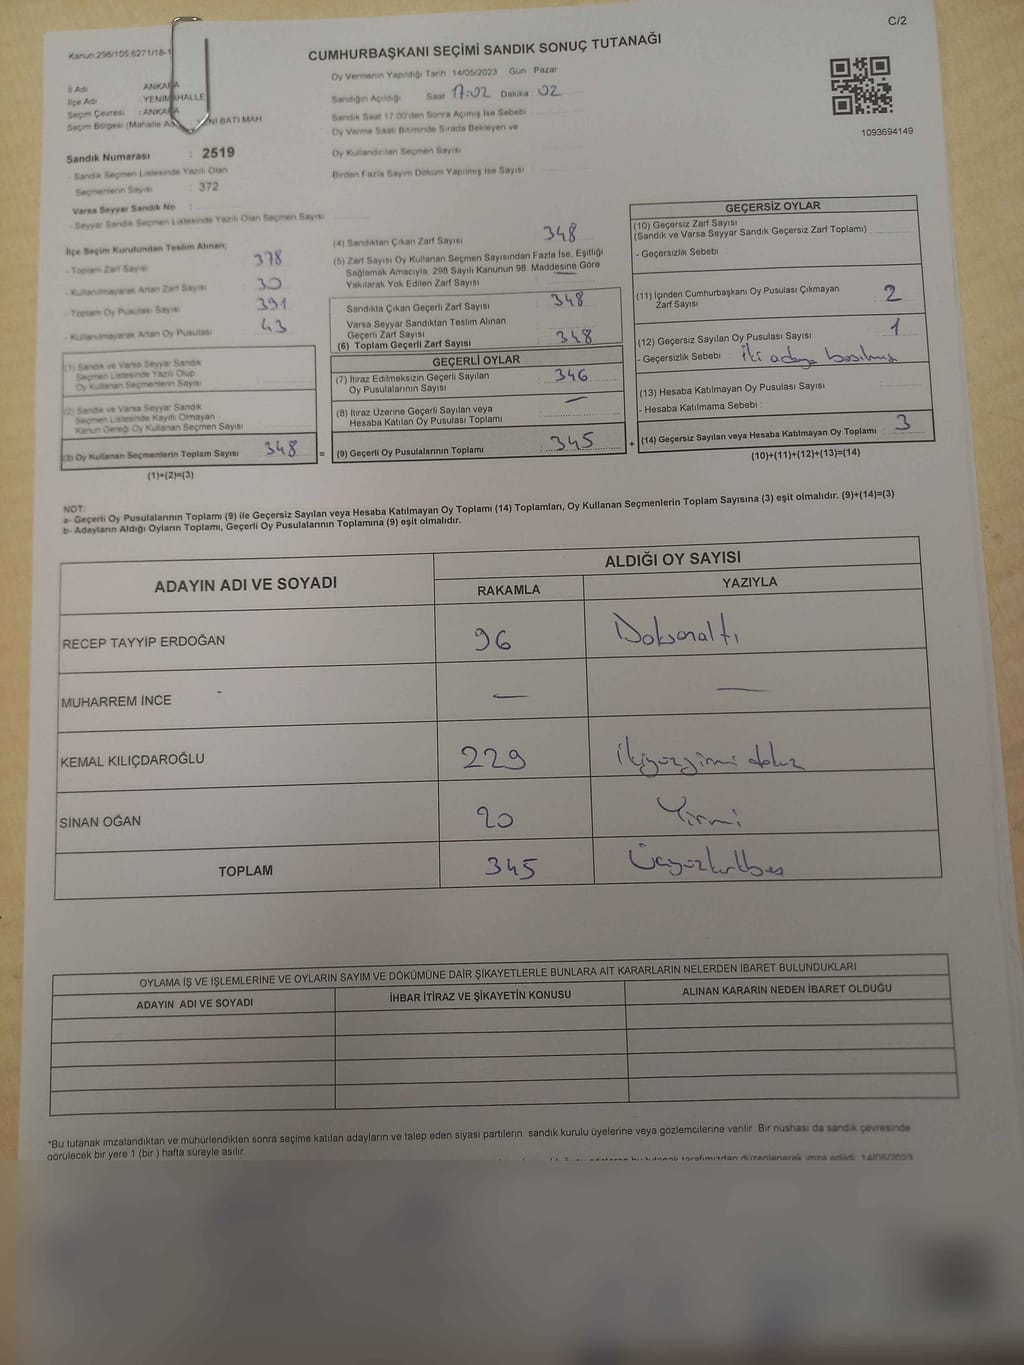 C/2
Kanun:298/105;6271/18-1
CUMHURBAŞKANI SEÇİMİ SANDIK SONUÇ TUTANAĞI
İl Adı ANKARA
İlçe Adı YENİMAHALLE
Seçim Çevresi : ANKARA
Seçim Bölgesi (Mahalle NI BATI MAH.
Sandık Numarası : 2519
- Sandık Seçmen Listesinde Yazılı Olan
Seçmenlerin Sayısı : 372
Varsa Seyyar Sandık No :
- Seyyar Sandık Seçmen Listesinde Yazılı Olan Seçmen Sayısı
Oy Vermenin Yapıldığı Tarih 14/05/2023 Gün : Pazar
Sandığın Açıldığı Saat 17:02 Dakika : 02
Sandık Saat 17:00'den Sonra Açımış İse Sebebi
Oy Verme Saati Bitiminde Sırada Bekleyen ve
Oy Kullandırılan Seçmen Sayısı
Birden Fazla Sayım Döküm Yapılmış İse Sayısı
1093694149
İlçe Seçim Kurulundan Teslim Alınan;
- Toplam Zarf Sayısı 378
- Kullanılmayarak Artan Zarf Sayısı 30
- Toplam Oy Pusulası Sayısı 391
- Kullanılmayarak Artan Oy Pusulası 43
(1) Sandık ve Varsa Seyyar Sandık
Seçmen Listesinde Yazılı Olup
Oy Kullanan Seçmenlerin Sayısı
(2) Sandık ve Varsa Seyyar Sandık
Seçmen Listesinde Kayıtlı Olmayan
Kanun Gereği Oy Kullanan Seçmen Sayısı
(3) Oy Kullanan Seçmenlerin Toplam Sayısı 348 =
(1)+(2)=(3)
(4) Sandıktan Çıkan Zarf Sayısı 348
(5) Zarf Sayısı Oy Kullanan Seçmen Sayısından Fazla İse, Eşitliği
Sağlamak Amacıyla, 298 Sayılı Kanunun 98. Maddesine Göre
Yakılarak Yok Edilen Zarf Sayısı —
Sandıkta Çıkan Geçerli Zarf Sayısı 348
Varsa Seyyar Sandıktan Teslim Alınan
Geçerli Zarf Sayısı
(6) Toplam Geçerli Zarf Sayısı 348
GEÇERLİ OYLAR
(7) İtiraz Edilmeksizin Geçerli Sayılan
Oy Pusulalarının Sayısı 346
(8) İtiraz Üzerine Geçerli Sayılan veya
Hesaba Katılan Oy Pusulası Toplamı —
(9) Geçerli Oy Pusulalarının Toplamı : 345 +
GEÇERSİZ OYLAR
(10) Geçersiz Zarf Sayısı
(Sandık ve Varsa Seyyar Sandık Geçersiz Zarf Toplamı) :
- Geçersizlik Sebebi
(11) İçinden Cumhurbaşkanı Oy Pusulası Çıkmayan
Zarf Sayısı : 2
(12) Geçersiz Sayılan Oy Pusulası Sayısı 1
- Geçersizlik Sebebi : İki adaya basılmış
(13) Hesaba Katılmayan Oy Pusulası Sayısı
- Hesaba Katılmama Sebebi :
(14) Geçersiz Sayılan veya Hesaba Katılmayan Oy Toplamı : 3
(10)+(11)+(12)+(13)=(14)
NOT:
a- Geçerli Oy Pusulalarının Toplamı (9) ile Geçersiz Sayılan veya Hesaba Katılmayan Oy Toplamı (14) Toplamları, Oy Kullanan Seçmenlerin Toplam Sayısına (3) eşit olmalıdır. (9)+(14)=(3)
b- Adayların Aldığı Oyların Toplamı, Geçerli Oy Pusulalarının Toplamına (9) eşit olmalıdır.
ADAYIN ADI VE SOYADI ALDIĞI OY SAYISI
RAKAMLA YAZIYLA
RECEP TAYYİP ERDOĞAN 96 Doksanaltı
MUHARREM İNCE — —
KEMAL KILIÇDAROĞLU 229 İkiyüzyirmi dokuz
SİNAN OĞAN 20 Yirmi
TOPLAM 345 Üçyüzkırkbeş
OYLAMA İŞ VE İŞLEMLERİNE VE OYLARIN SAYIM VE DÖKÜMÜNE DAİR ŞİKAYETLERLE BUNLARA AİT KARARLARIN NELERDEN İBARET BULUNDUKLARI
ADAYIN ADI VE SOYADI İHBAR İTİRAZ VE ŞİKAYETİN KONUSU ALINAN KARARIN NEDEN İBARET OLDUĞU
*Bu tutanak imzalandıktan ve mühürlendikten sonra seçime katılan adayların ve talep eden siyasi partilerin sandık kurulu üyelerine veya gözlemcilerine verilir. Bir nüshası da sandık çevresinde
görülecek bir yere 1 (bir ) hafta süreyle asılır.
bu tutanak tarafımızdan düzenlenerek imza edildi. 14/05/2023